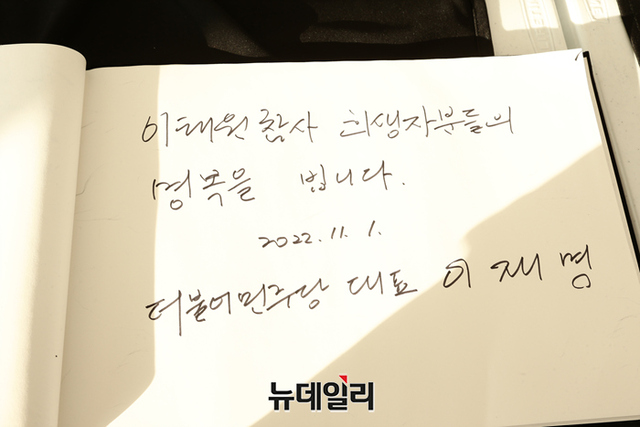 이태원 참사 희생자분들의
명복을 빕니다.
2022. 11. 1.
더불어민주당 대표 이재명
뉴데일리